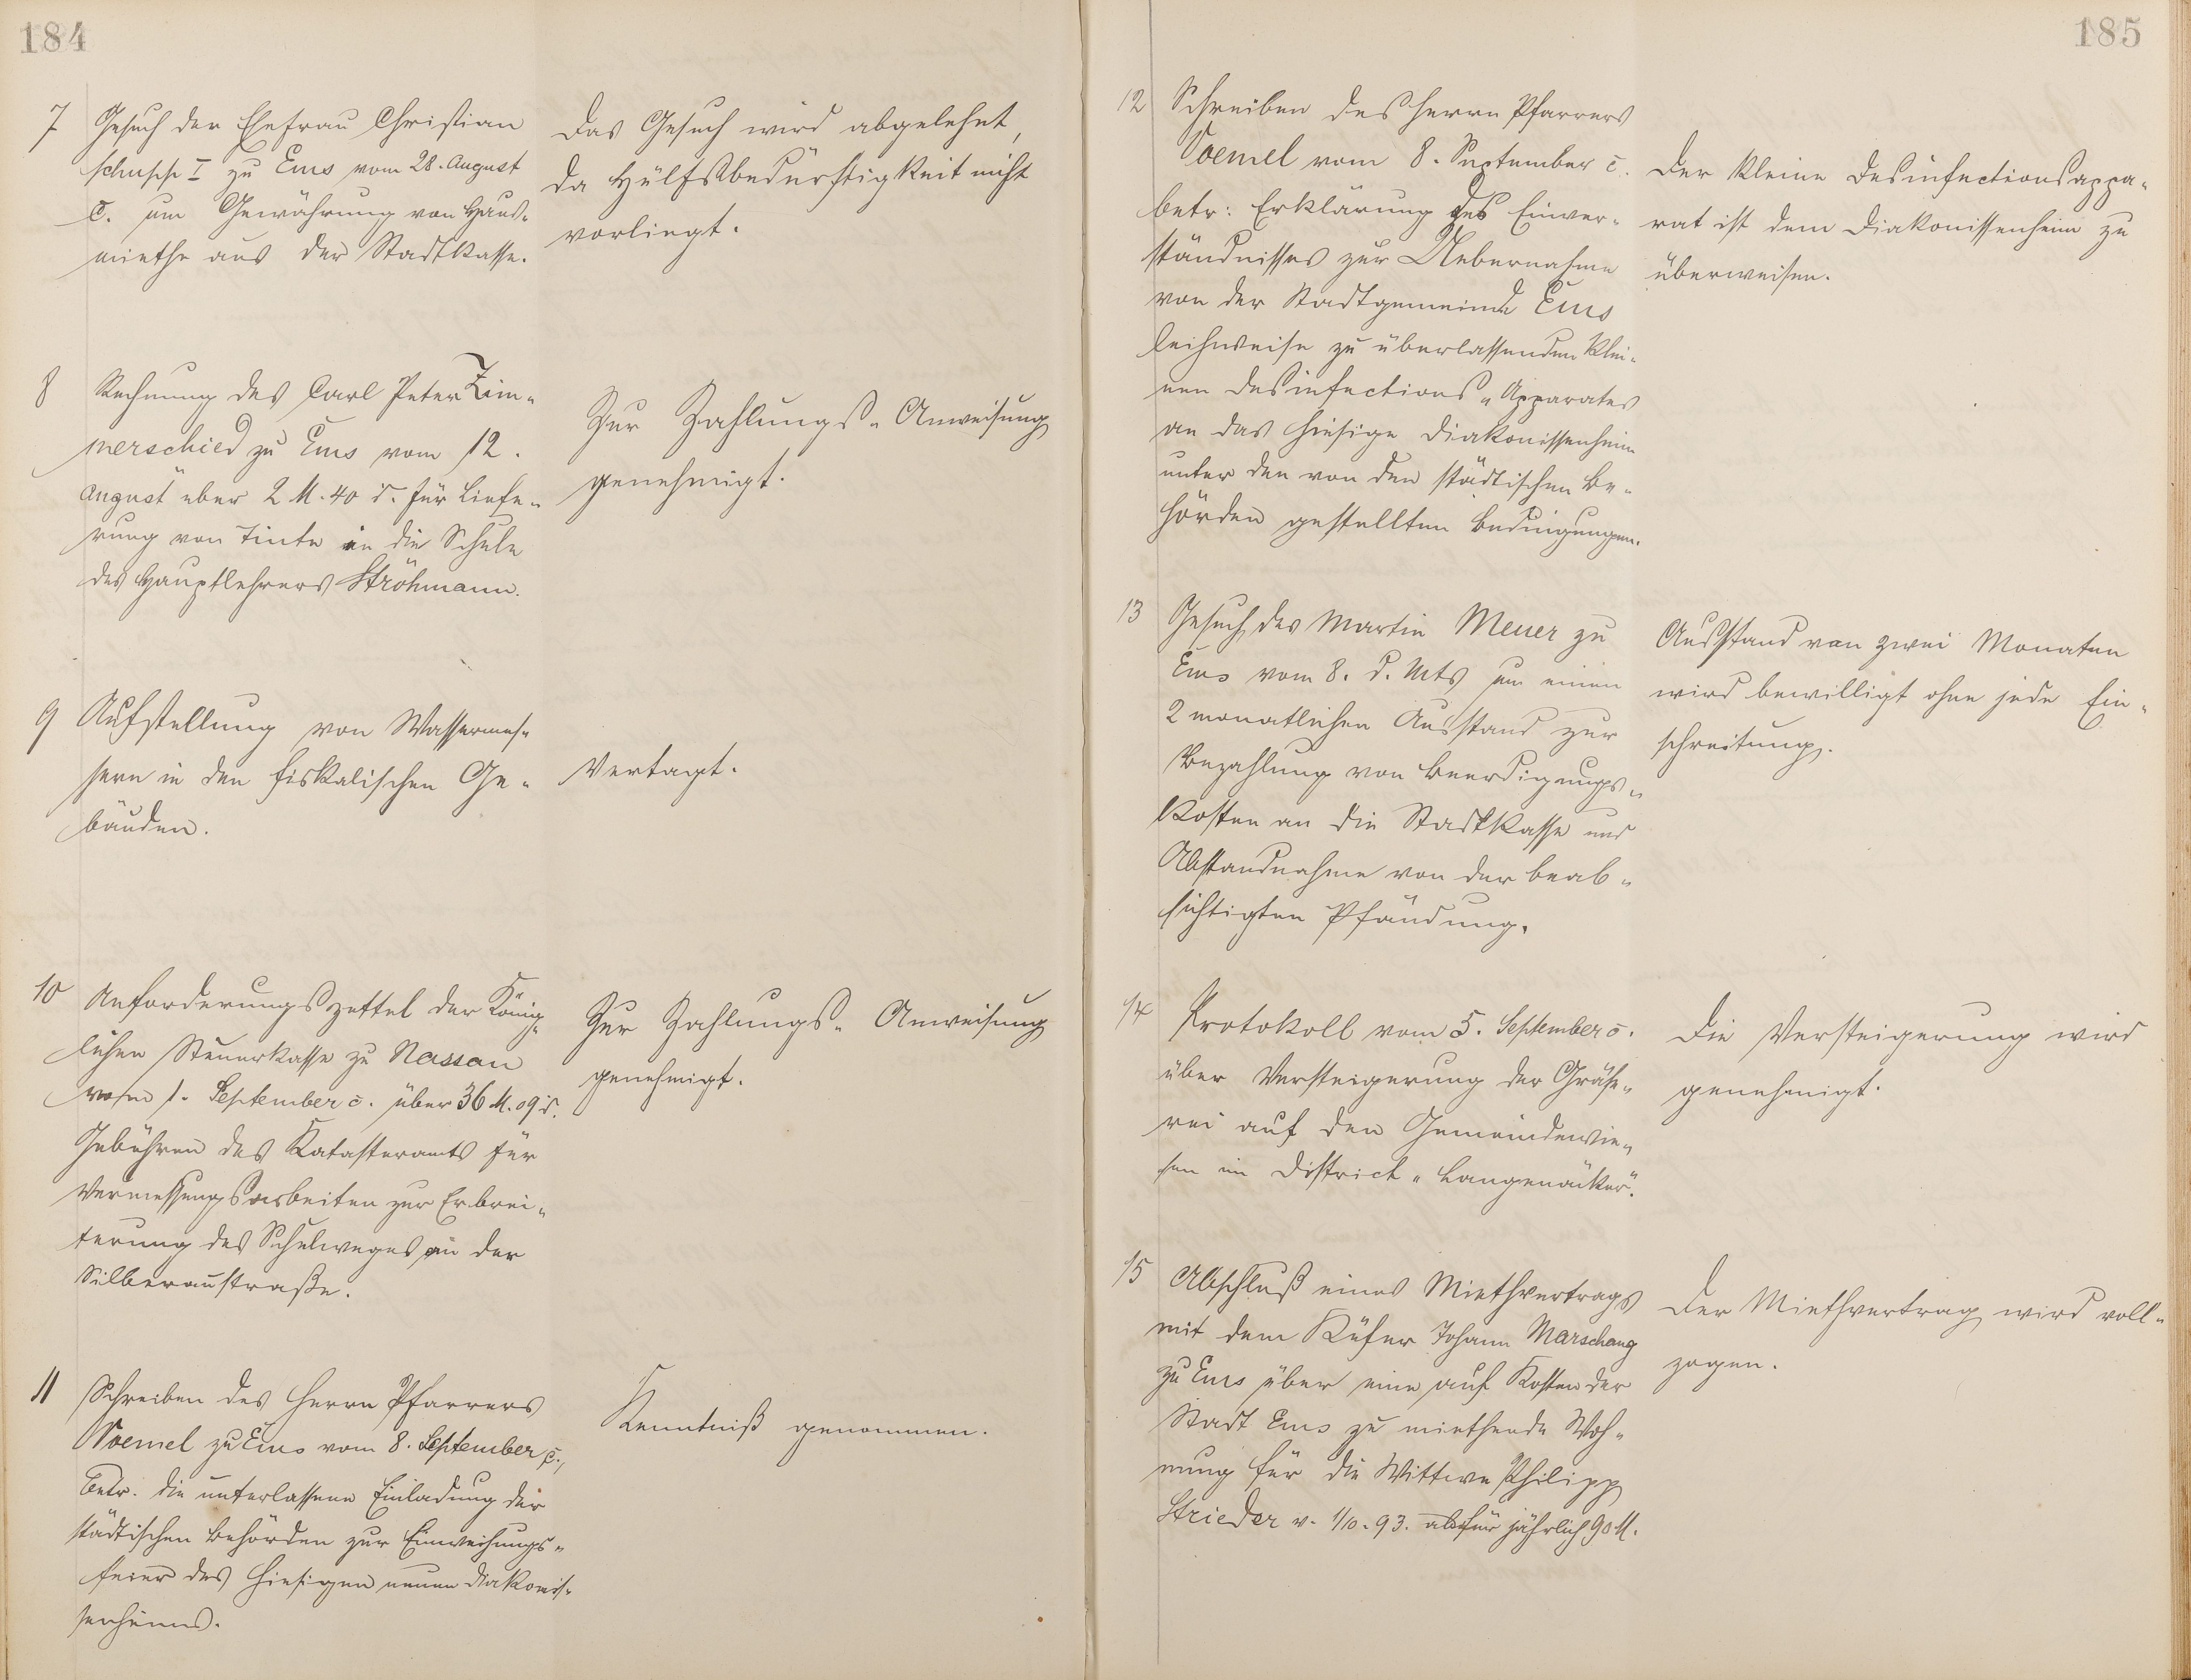 184
7 Gesuch der Ehefrau Christian
Schupp I zu Ems vom 28. August
c. um Gewährung von Haus-
miethe aus der Stadtkasse.
Das Gesuch wird abgelehnt,
da Hülfsbedürftigkeit nicht
vorliegt.
8 Rechnung des Carl Peter Zim-
merschied zu Ems vom 12.
August über 2 M. 40 d. für Liefe-
rung von Tinte in die Schule
des Hauptlehrers Ströhmann.
Zur Zahlungs-Anweisung
genehmigt.
9 Aufstellung von Wassermes-
sern in den fiskalischen Ge-
bäuden.
Vertagt.
10 Anforderungszettel der König-
lichen Steuerkasse zu Nassau
vom 1. September c. über 36 M. 09 d.
Gebühren des Katasteramts für
Vermessungsarbeiten zur Erbrei-
terung des Schulweges in der
Silberaustraße.
Zur Zahlungs-Anweisung
genehmigt.
11 Schreiben des Herrn Pfarrers
Voemel zu Ems vom 8. September c.,
betr. die unterlassene Einladung der
städtischen Behörden zur Einweihungs-
feier des hiesigen neuen Diakonis-
senheims.
Kenntniß genommen.
185
12 Schreiben des Herrn Pfarrers
Voemel vom 8. September c.
betr: Erklärung des Einver-
ständnisses zur Uebernahme
von der Stadtgemeinde Ems
leihweise zu überlassenden klei-
nen Desinfections-Apparates
an das hiesige Diakonissenheim
unter den von den städtischen Be-
hörden gestellten Bedingungen.
Der kleine Desinfectionsappa-
rat ist dem Diakonissenheim zu
überweisen.
13 Gesuch des Martin Meuer zu
Ems vom 8. d. Mts um einen
2 monatlichen Ausstand zur
Bezahlung von Beerdigungs-
kosten an die Stadtkasse und
Abstandnahme von der beab-
sichtigten Pfändung.
Ausstand von zwei Monaten
wird bewilligt ohne jede Ein-
schreitung.
14 Protokoll vom 5. September c.
über Versteigerung der Gräse-
rei auf den Gemeindewie-
sen im District „Langenäcker“.
Die Versteigerung wird
genehmigt.
15 Abschluß eines Miethvertrags
mit dem Küfer Johann Marschang
zu Ems über eine auf Kosten der
Stadt Ems zu miethende Woh-
nung für die Wittwe Philipp
Strieder v. 1/10. 93. ab für jährlich 90 M.
Der Miethvertrag wird voll-
zogen.